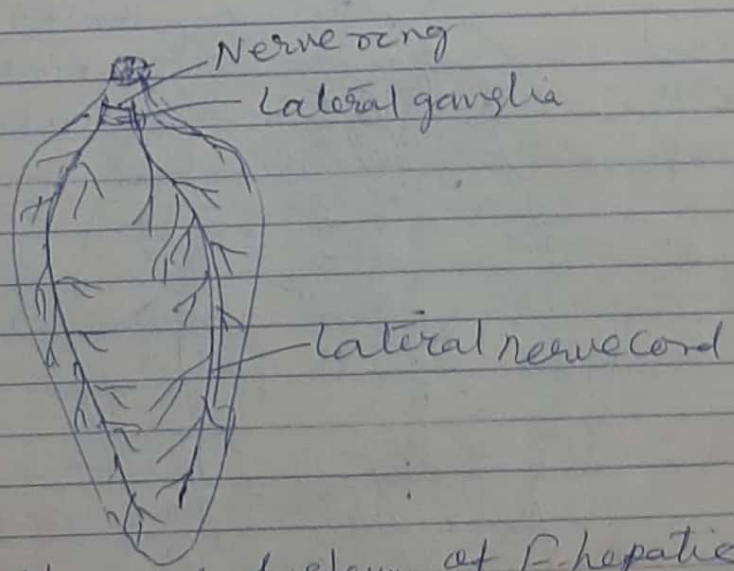 Nerve ring
Lateral ganglia
Lateral nerve cord
of F. hepatic